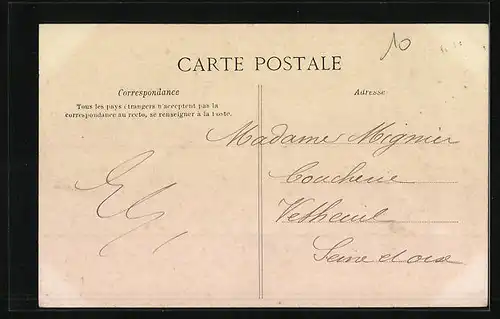 10
CARTE POSTALE
Correspondance
Tous les pays étrangers n'acceptent pas la
correspondance au recto, se renseigner à la Poste.
Adresse
Madame Mignier
Vetheuil
Seine et oise